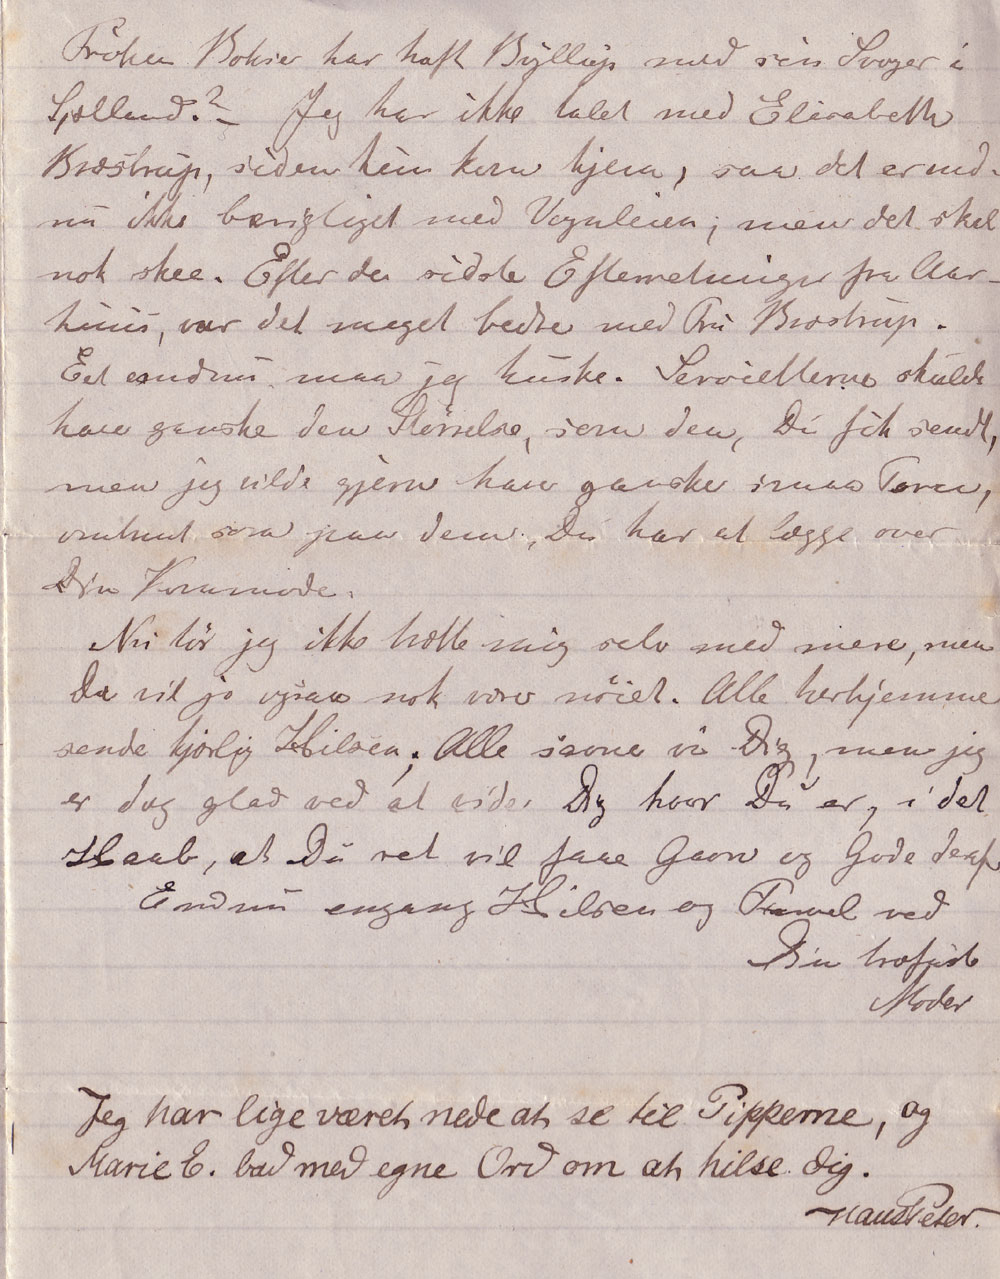 Frøken Boisen har haft Bryllup med sin Svoger i
Sjælland? – Jeg har ikke talet med Elisabeth
Bræstrup, siden hun kom hjem, saa det er end-
nu ikke berigtiget med Vognleien; men det skal
nok skee. Efter de sidste Efterretninger fra Aar-
huus, var det meget bedre med Fru Bræstrup.
Eet endnu maa jeg huske. Servietterne skulde
have ganske den Størrelse, som den, Du fik sendt,
men jeg vilde gjerne have ganske smaa Tærn,
omtrent som paa dem, Du har at lægge over
Din Kommode.
Nu tør jeg ikke trætte mig selv med mere, men
Du vil jo ogsaa nok være nøiet. Alle herhjemme
sende kjærlig Hilsen; Alle savne vi Dig, men jeg
er dog glad ved at vide Dig hvor Du er, i det
Haab, at Du ret vil faae Gavn og Gode deraf
Endnu engang Hilsen og Farvel ved
Din trofaste
Moder
Jeg har lige været nede at se til Pipperne, og
Marie E. bad med egne Ord om at hilse dig.
Hans Peter.